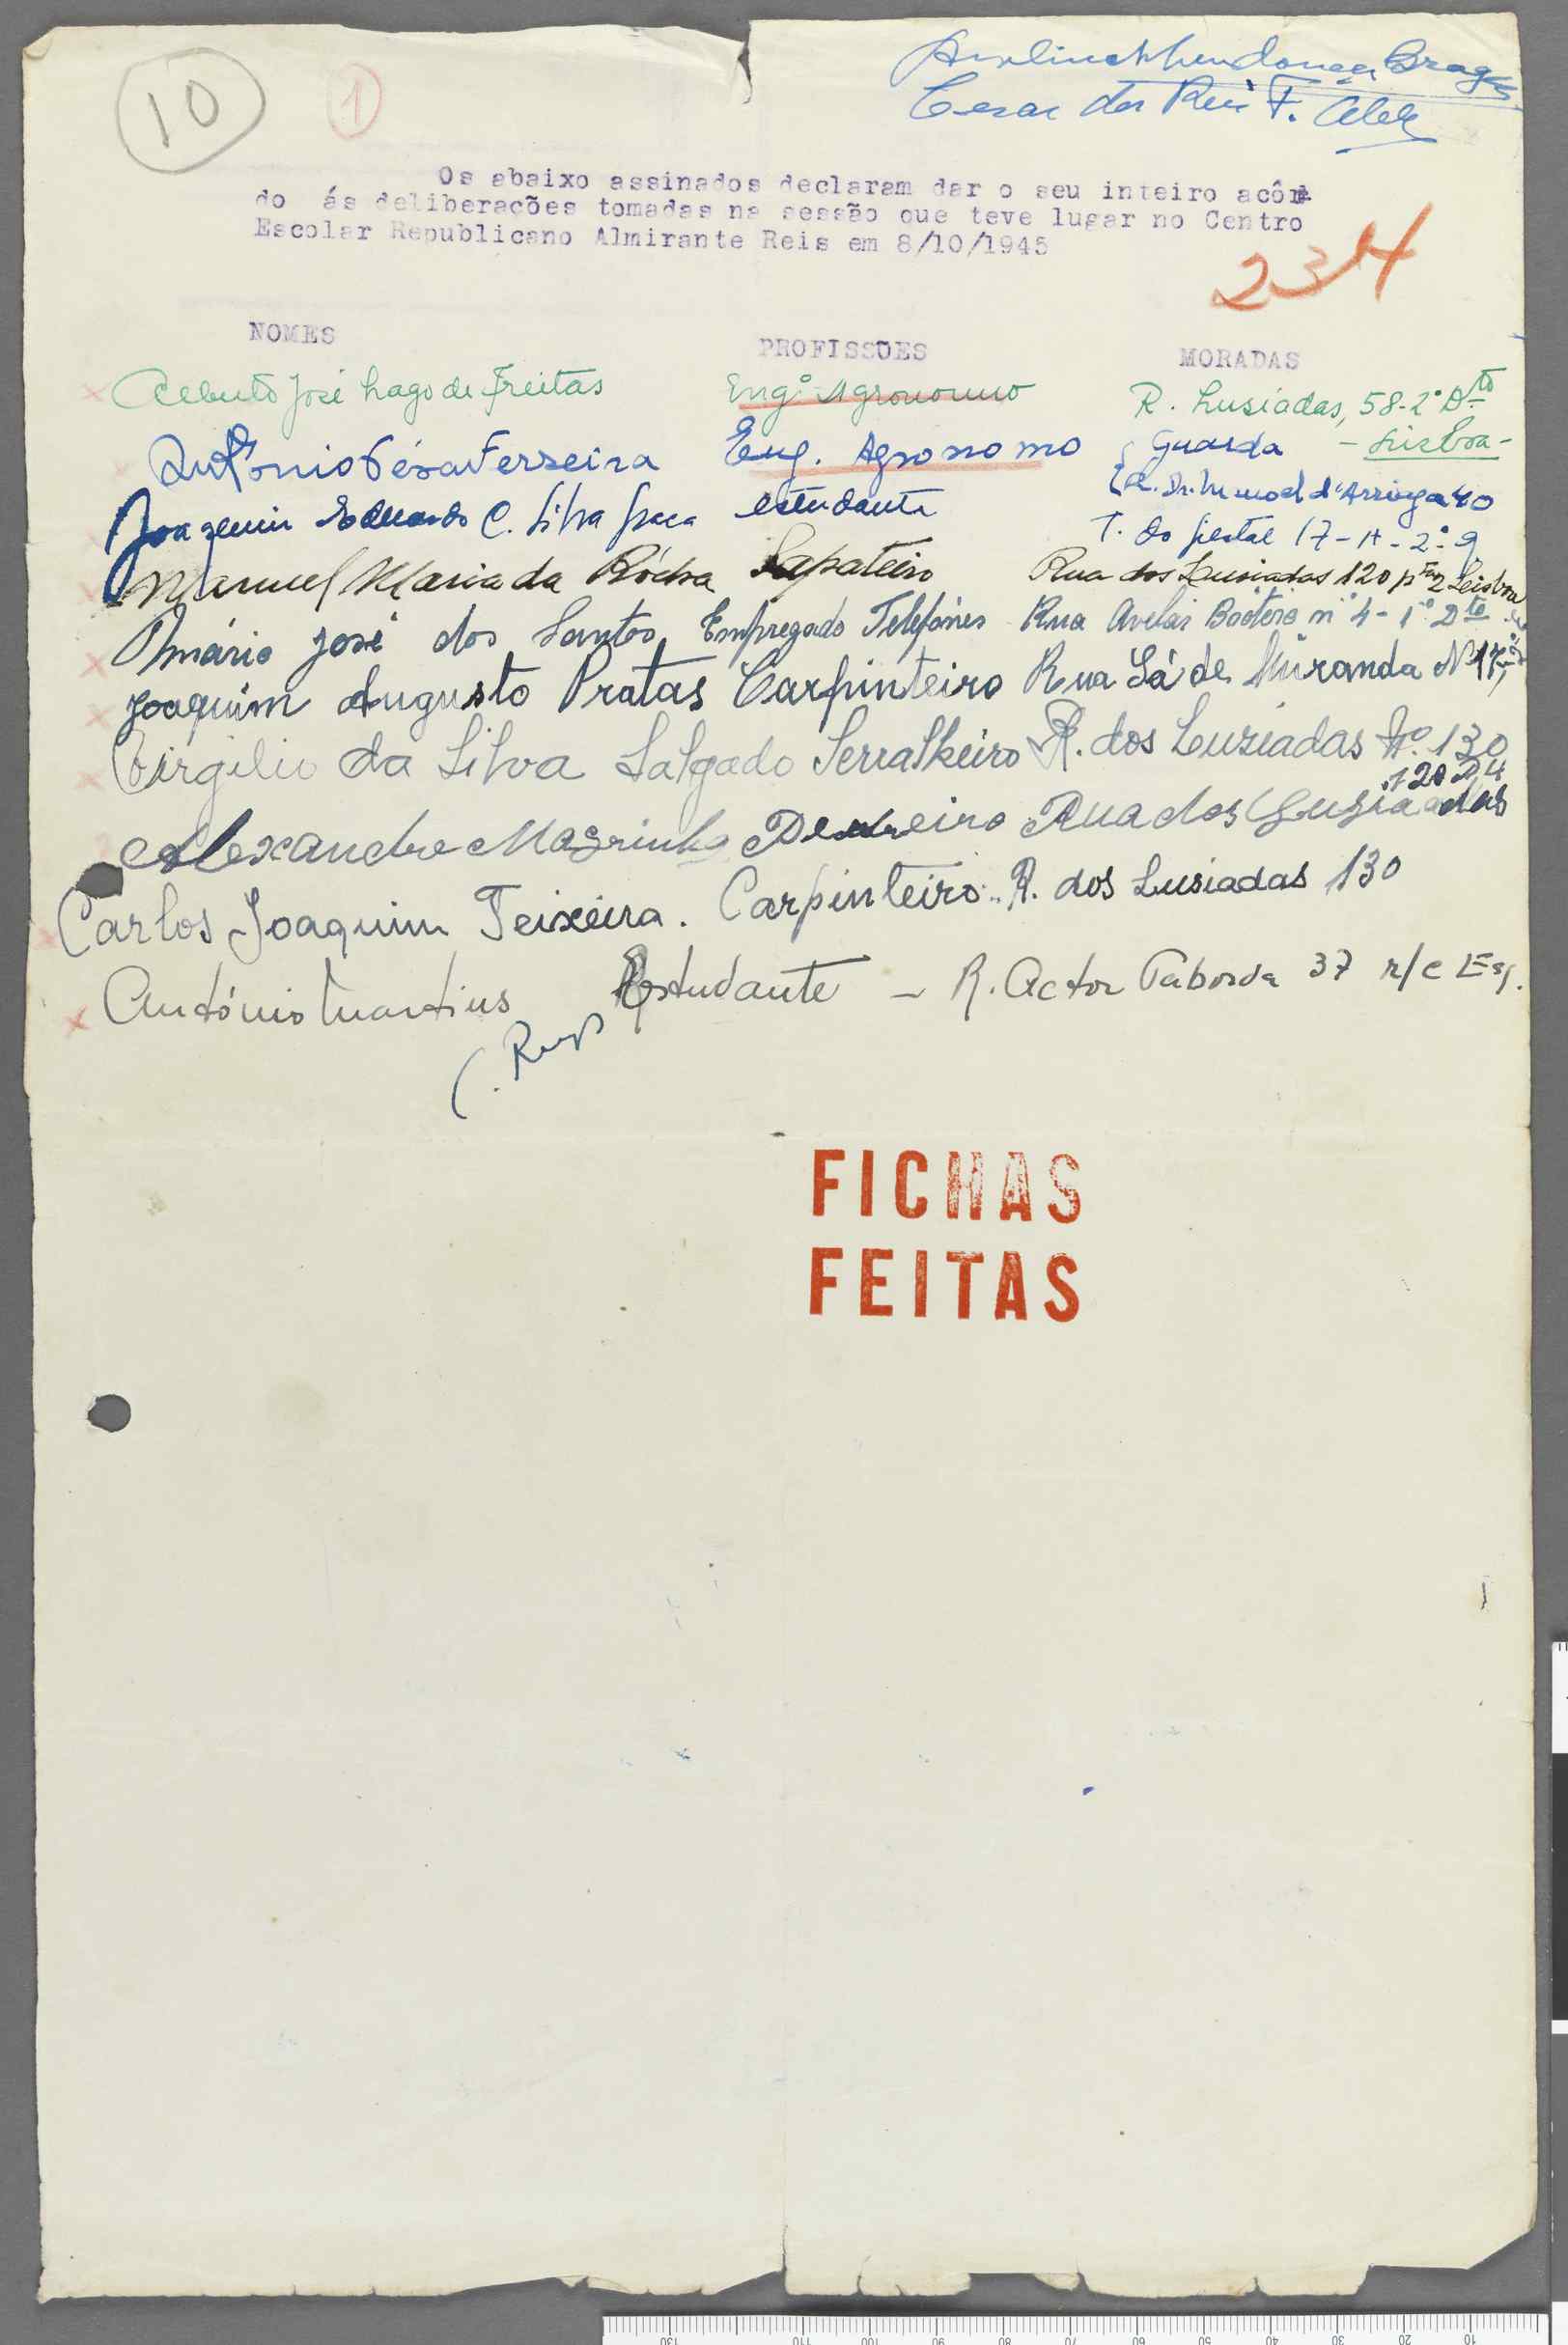 10
1
Braga
Cesar dos Reis F.
Os abaixo assinados declaram dar o seu inteiro acôr
do ás deliberações tomadas na sessão que teve lugar no Centro
Escolar Republicano Almirante Reis em 8/10/1945
234
NOMES PROFISSOES MORADAS
Alberto José Lago de Freitas Engº Agronomo R. Lusiadas, 58-2º Dto
- Lisboa -
António Ferreira Eng. Agronomo Guarda
R. Dr. Manoel d'Arriaga 40
Joaquim Eduardo C. Silva estudante T. do 17-A-2º
Manuel Maria da Rocha Sapateiro Rua dos Lusiadas 120 Lisboa
Mário José dos Santos Empregado Telefónes Rua Avelar Botero nº 4-1º Dto
Joaquim Augusto Pratas Carpinteiro Rua Sá de Miranda Nº 17
Virgilio da Silva Salgado Serralheiro R. dos Luziadas Nº 130
120
Alexandre Pedreiro Rua dos Lusiadas
Carlos Joaquim Teixeira. Carpinteiro.. R. dos Lusiadas 130
António Martins Estudante - R. Actor Taborda 37 r/c Esq.
FICHAS
FEITAS